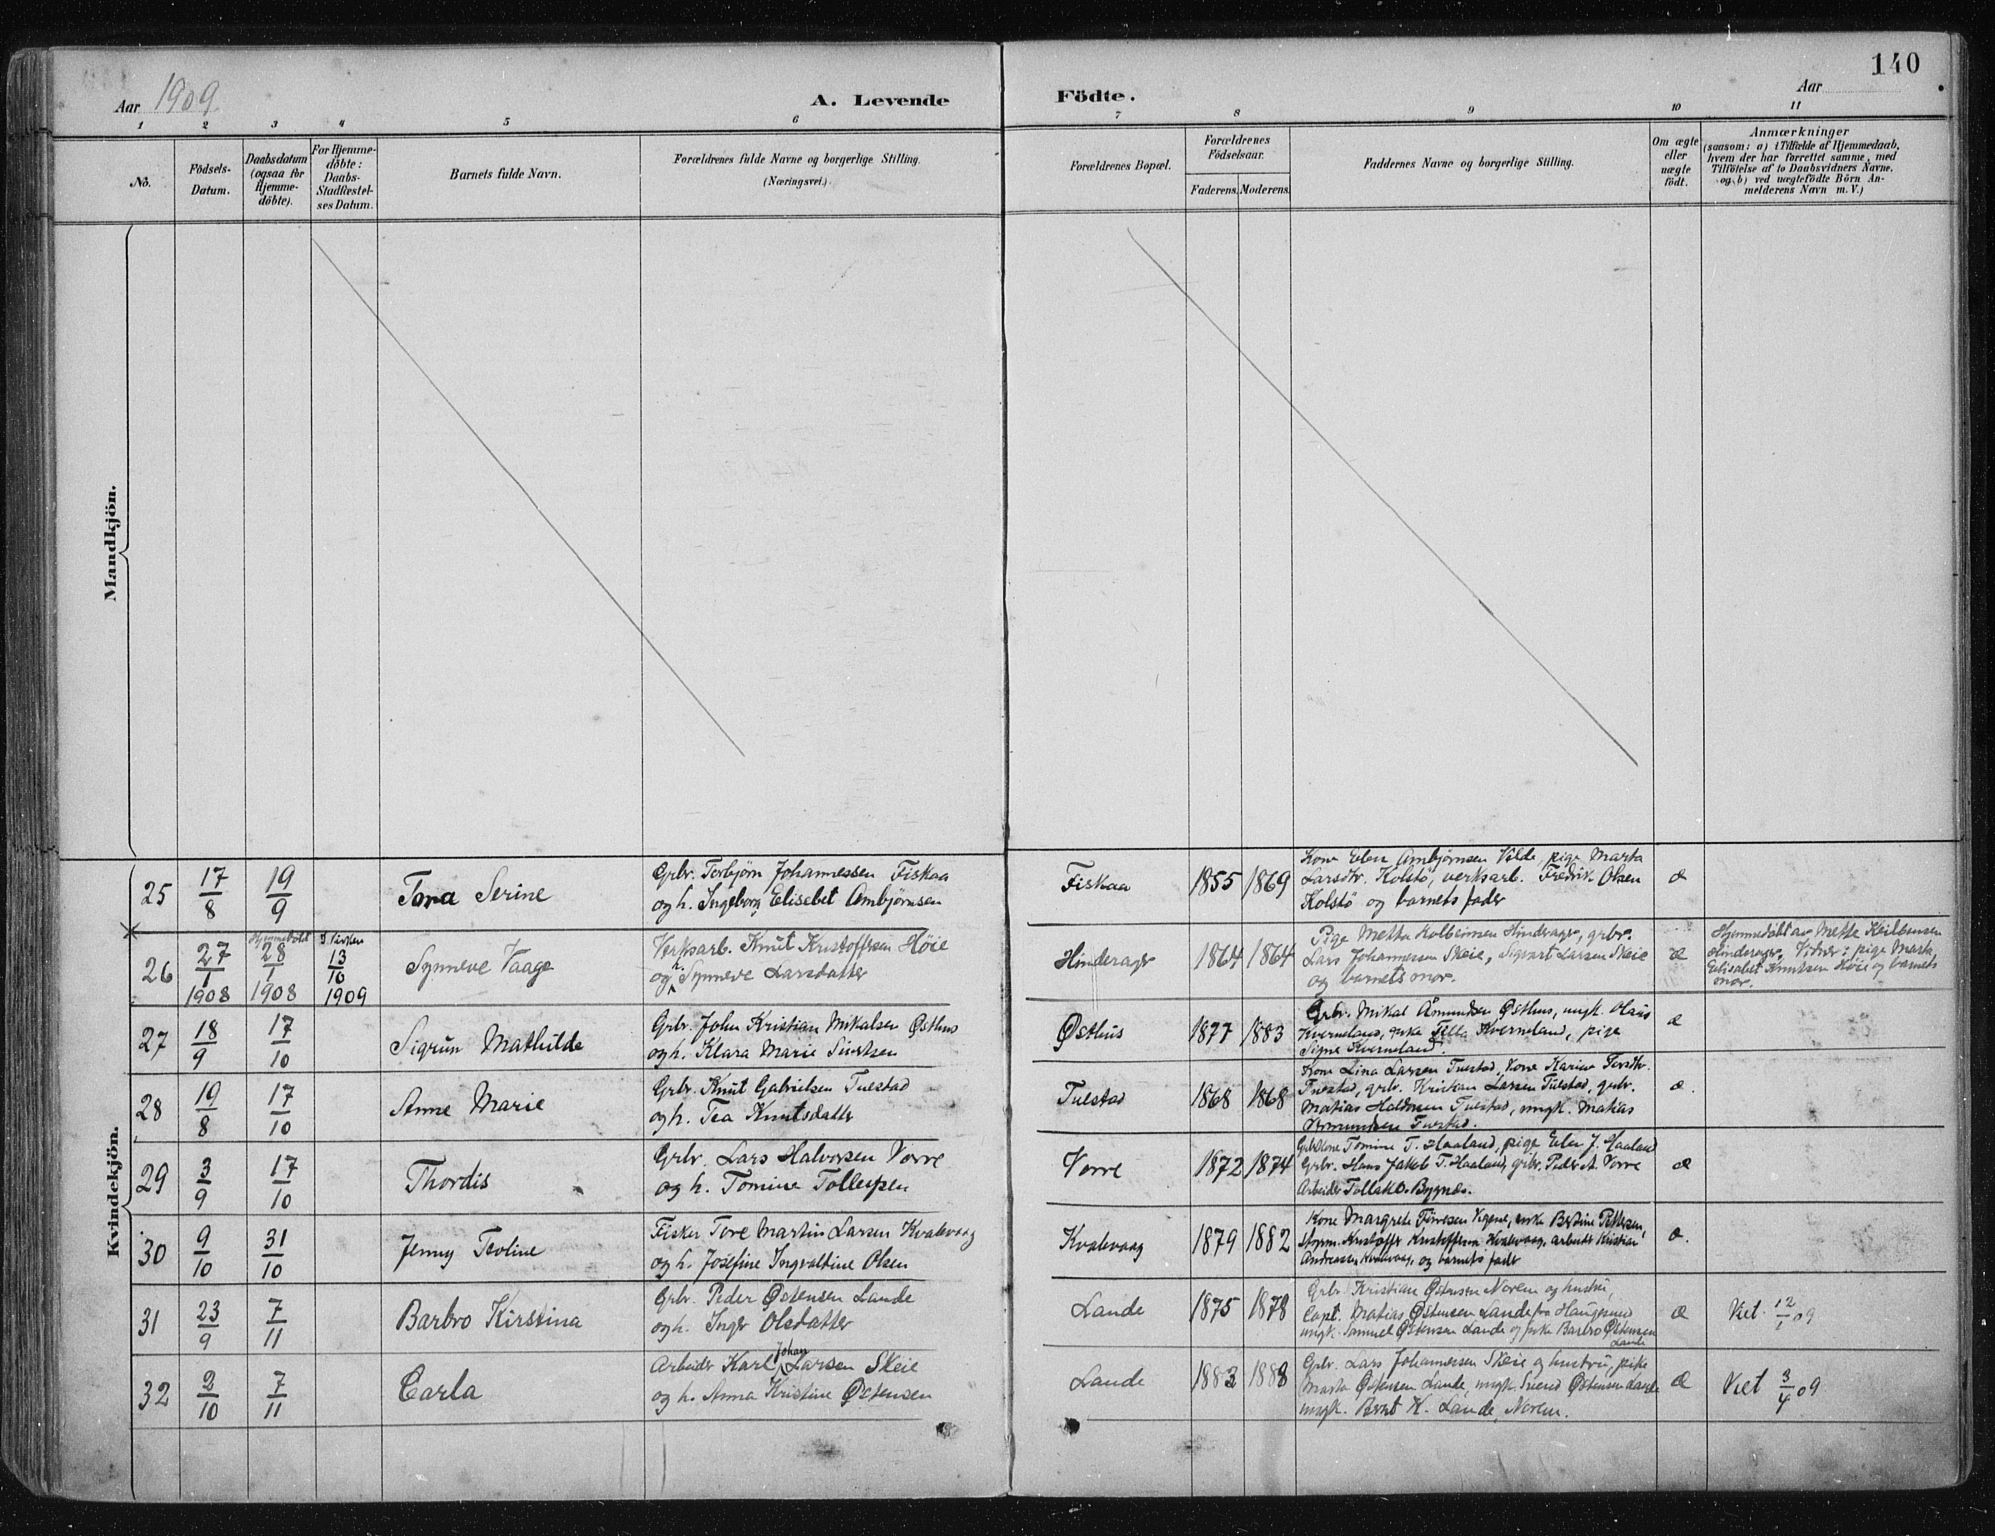 140
Aar 1909.
A. Levende Födte.
Aar
1 2 3 4 5 6 7 8 9 10 11
No.
Födsels-Datum.
Daabsdatum (ogsaa for Hjemme-döbte).
For Hjemme-döbte: Daabs-Stadfæstel-ses Datum.
Barnets fulde Navn.
Forældrenes fulde Navne og borgerlige Stilling. (Næringsvei.)
Forældrenes Bopæl.
Forældrenes Födselsaar.
Faderens. Moderens.
Faddernes Navne og borgerlige Stilling.
Om ægte eller uægte født.
Anmærkninger
(saasom: a) i Tilfælde af Hjemmedaab,
hvem der har forrettet samme, med
Tilföielse af to Daabsvidners Navne,
og b) ved uægtefödte Börn An-
melderens Navn m. V.)
Mandkjön.
Kvindekjön.
25 17/8 19/9 Tora Serine
Grbr. Torbjørn Johannessen Fiskaa
og h. Ingeborg Elisabet Ambjørnsen
Fiskaa 1855 1869
Kone Elen Ambjørnsen Velde, pige Marta
Larsdtr. Kolstö, verksarb. Fredrik Olsen
Kolstö og barnets fader
æ
26 27/1 1908 Hjemmedøbt 28/1 1908 I kirken 13/10 1909 Synneve Vaage
Verksarb. Knut Kristoffersen Höie
og h. Synneve Larsdatter
Hinderager 1864 1864
Pige Metha Kolbeinsen Hinderager, grbr.
Lars Johannessen Skeie, Sigvart Larsen Skeie
og barnets mor.
æ
Hjemmedöbt av Mette Kolbensen
Hinderager. Vidner: pige Marta
Elisabet Knutsen Höie og barnets
mor.
27 18/9 17/10 Sigrun Mathilde
Grbr. John Kristian Mikalsen Østhus
og h. Klara Marie Sivertsen
Østhus 1877 1883
Grbr. Mikal Åmundsen Østhus, ungk. Olaus
Kverneland, pike Tilla Kverneland, pige
Signe Kverneland.
æ
28 19/8 17/10 Anne Marie
Grbr. Knut Gabrielsen Tuestad
og h. Tea Knutsdatter
Tuestad 1868 1868
Kone Lina Larsen Tuestad, kone Karine
Tuestad, grbr. Kristian Larsen Tuestad, grbr.
Matias Haldorsen Tuestad, ungk. Matias
Tuestad.
æ.
29 3/9 17/10 Thordis
Grbr. Lars Halvorsen Vorre
og h. Tomine Tollefsen
Vorre 1872 1874
Grbr.kone Tomine T. Haaland, pige Elen J. Haaland
Grbr. Hans Jakob T. Haaland, grbr. Peder A. Vorre
Arbeider Tollak O. Bygnes.
æ
30 9/10 31/10 Jenny Teoline
Fisker Tore Martin Larsen Kvalevaag
og h. Josefine Ingvaldine Olsen
Kvalevaag 1879 1882
Kone Margrete Vigene, enke Bertine Pettersen,
Kristoffer Kristoffersen Kvalevaag, arbeider Kristian
Andreassen Kvalevaag, og barnets fader
æ.
31 23/9 7/11 Barbro Kirstina
Grbr. Peder Østensen Lande
og h. Inger Olsdatter
Lande 1875 1878
Grbr. Kristian Østensen Norem og hustru,
Capt. Matias Østensen Lande fra Haugesund
ungk. Samuel Østensen Lande og pike Barbro Østensen
Lande
æ
Viet 12/1 09
32 2/10 7/11 Carla
Arbeider Karl Johan Larsen Skeie
og h. Anna Kristine Østensen
Lande 1883 1888
Grbr. Lars Johannessen Skeie og hustru, pike
Marta Østensen Lande, ungk. Svend Østensen Lande
ungk. Bernt K. Lande, Norem.
æ
Viet 3/4 09